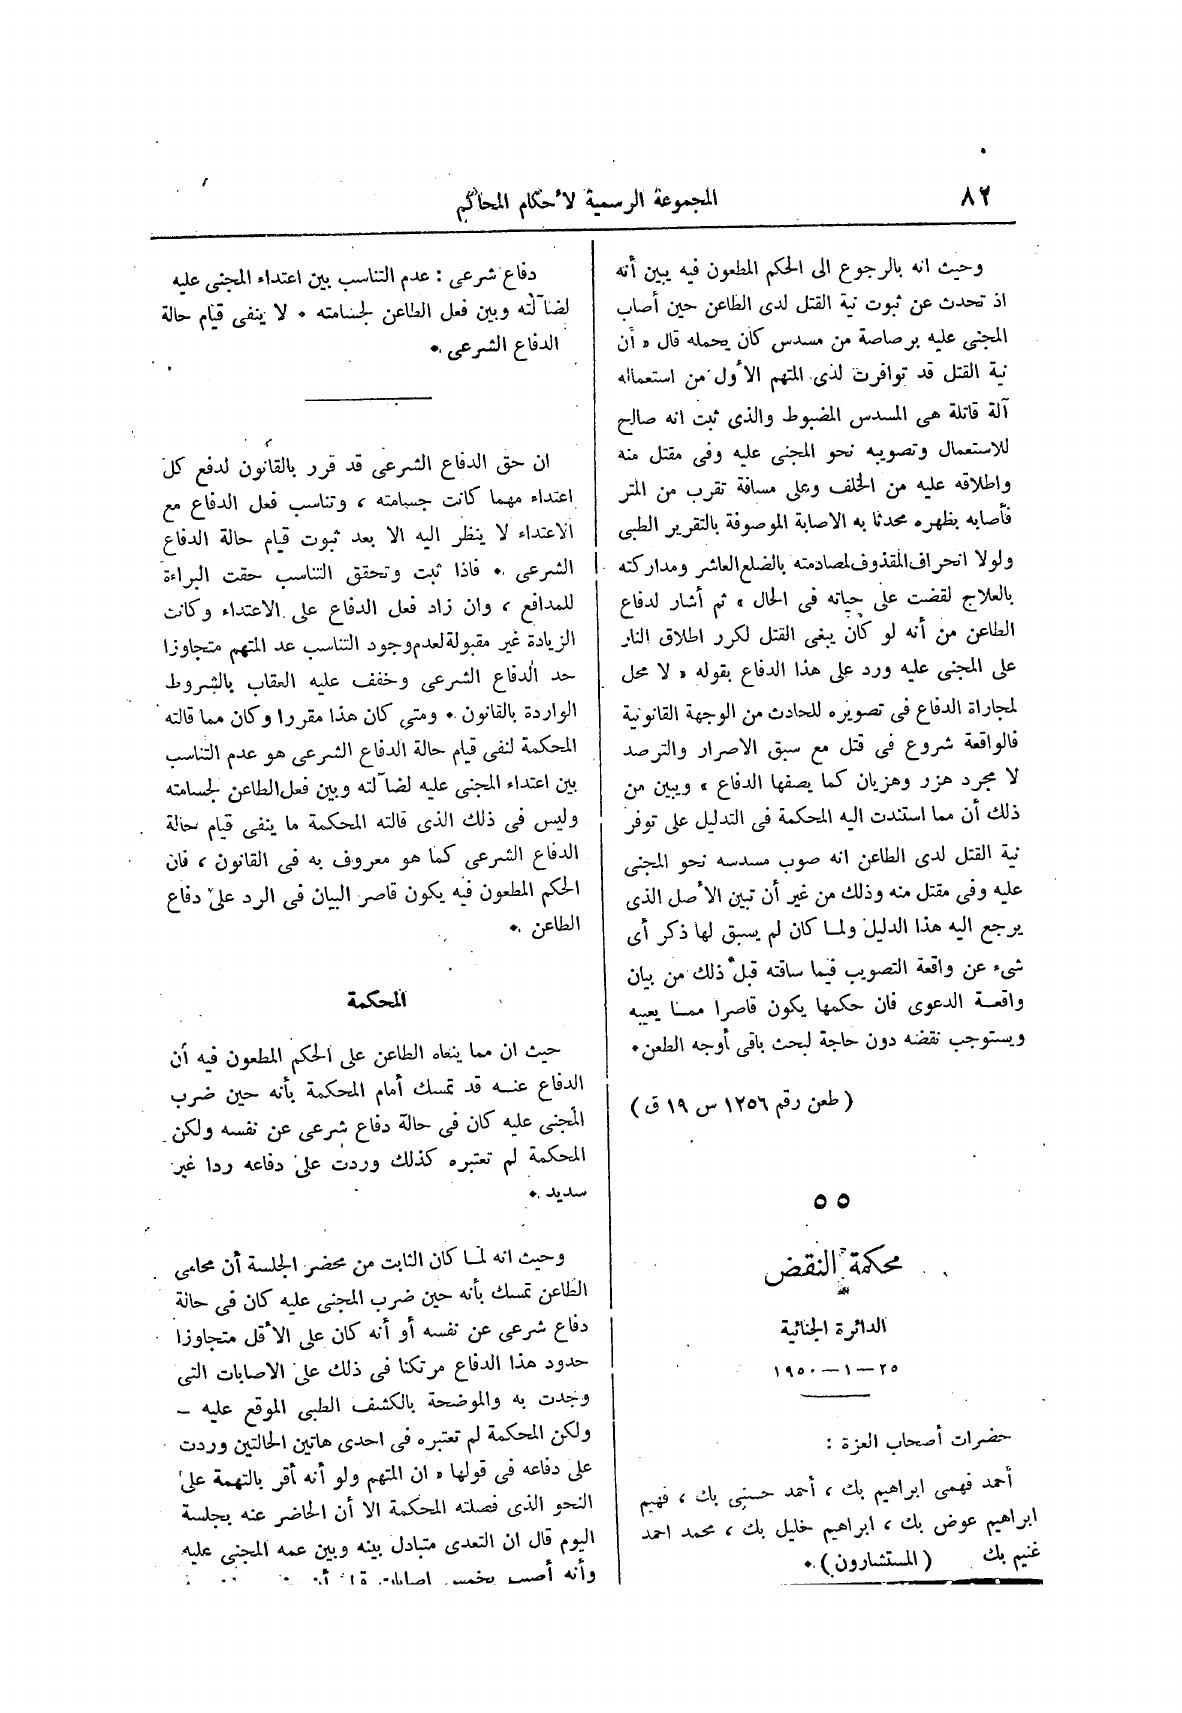 ٨٢
المجموعة الرسمية لأحكام المحاكم
وحيث انه بالرجوع الى الحكم المطعون فيه يبين أنه
اذ تحدث عن ثبوت نية القتل لدى الطاعن حين أصاب
المجنى عليه برصاصة من مسدس كان يحمله قال « أن
نية القتل قد توافرت لدى المتهم الأول من استعماله
آلة قاتلة هى المسدس المضبوط والذى ثبت انه صالح
للاستعمال وتصويبه نحو المجنى عليه وفى مقتل منه
واطلاقه عليه من الخلف وعلى مسافة تقرب من المتر
فأصابه بظهره محدثا به الاصابة الموصوفة بالتقرير الطبى
ولولا انحراف المقذوف لمصادمته بالضلع العاشر ومداركته
بالعلاج لقضت على حياته فى الحال » ثم أشار لدفاع
الطاعن من أنه لو كان يبغى القتل لكرر اطلاق النار
على المجنى عليه ورد على هذا الدفاع بقوله « لا محل
لمجاراة الدفاع فى تصويره للحادث من الوجهة القانونية
فالواقعة شروع فى قتل مع سبق الاصرار والترصد
لا مجرد هزر وهزيان كما يصفها الدفاع » ويبين من
ذلك أن مما استندت اليه المحكمة فى التدليل على توفر
نية القتل لدى الطاعن انه صوب مسدسه نحو المجنى
عليه وفى مقتل منه وذلك من غير أن تبين الأصل الذى
يرجع اليه هذا الدليل ولما كان لم يسبق لها ذكر أى
شىء عن واقعة التصويب فيما ساقته قبل ذلك من بيان
واقعة الدعوى فان حكمها يكون قاصرا مما يعيبه
ويستوجب نقضه دون حاجة لبحث باقى أوجه الطعن.
( طعن رقم ١٢٥٦ س ١٩ ق )
٥٥
محكمة النقض
الدائرة الجنائية
٢٥ — ١ — ١٩٥٠
حضرات أصحاب العزة :
أحمد فهمى ابراهيم بك ، أحمد حسنى بك ، فهيم
ابراهيم عوض بك ، ابراهيم خليل بك ، محمد احمد
غنيم بك ( المستشارون ).
دفاع شرعى : عدم التناسب بين اعتداء المجنى عليه
لضآلته وبين فعل الطاعن لجسامته . لا ينفى قيام حالة
الدفاع الشرعى .
ان حق الدفاع الشرعى قد قرر بالقانون لدفع كل
اعتداء مهما كانت جسامته ، وتناسب فعل الدفاع مع
الاعتداء لا ينظر اليه الا بعد ثبوت قيام حالة الدفاع
الشرعى . فاذا ثبت وتحقق التناسب حقت البراءة
للمدافع ، وان زاد فعل الدفاع على الاعتداء وكانت
الزيادة غير مقبولة لعدم وجود التناسب عد المتهم متجاوزا
حد الدفاع الشرعى وخفف عليه العقاب بالشروط
الواردة بالقانون . ومتى كان هذا مقررا وكان مما قالته
المحكمة لنفى قيام حالة الدفاع الشرعى هو عدم التناسب
بين اعتداء المجنى عليه لضآلته وبين فعل الطاعن لجسامته
وليس فى ذلك الذى قالته المحكمة ما ينفى قيام حالة
الدفاع الشرعى كما هو معروف به فى القانون ، فان
الحكم المطعون فيه يكون قاصر البيان فى الرد على دفاع
الطاعن .
المحكمة
حيث ان مما ينعاه الطاعن على الحكم المطعون فيه أن
الدفاع عنه قد تمسك أمام المحكمة بأنه حين ضرب
المجنى عليه كان فى حالة دفاع شرعى عن نفسه ولكن
المحكمة لم تعتبره كذلك وردت على دفاعه ردا غير
سديد .
وحيث انه لما كان الثابت من محضر الجلسة أن محامى
الطاعن تمسك بأنه حين ضرب المجنى عليه كان فى حالة
دفاع شرعى عن نفسه أو أنه كان على الأقل متجاوزا
حدود هذا الدفاع مرتكنا فى ذلك على الاصابات التى
وجدت به والموضحة بالكشف الطبى الموقع عليه —
ولكن المحكمة لم تعتبره فى احدى هاتين الحالتين وردت
على دفاعه فى قولها « ان المتهم ولو أنه أقر بالتهمة على
النحو الذى فصلته المحكمة الا أن الحاضر عنه بجلسة
اليوم قال ان التعدى متبادل بينه وبين عمه المجنى عليه
وأنه أصيب بخمس اصابات